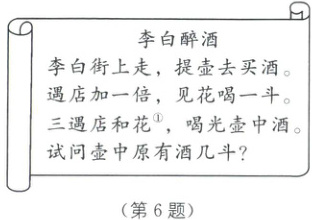 李白醉酒
李白街上走，提壶去买酒。
遇店加一倍，见花喝一斗。
三遇店和花①，喝光壶中酒。
试问壶中原有酒几斗？
（第 6 题）